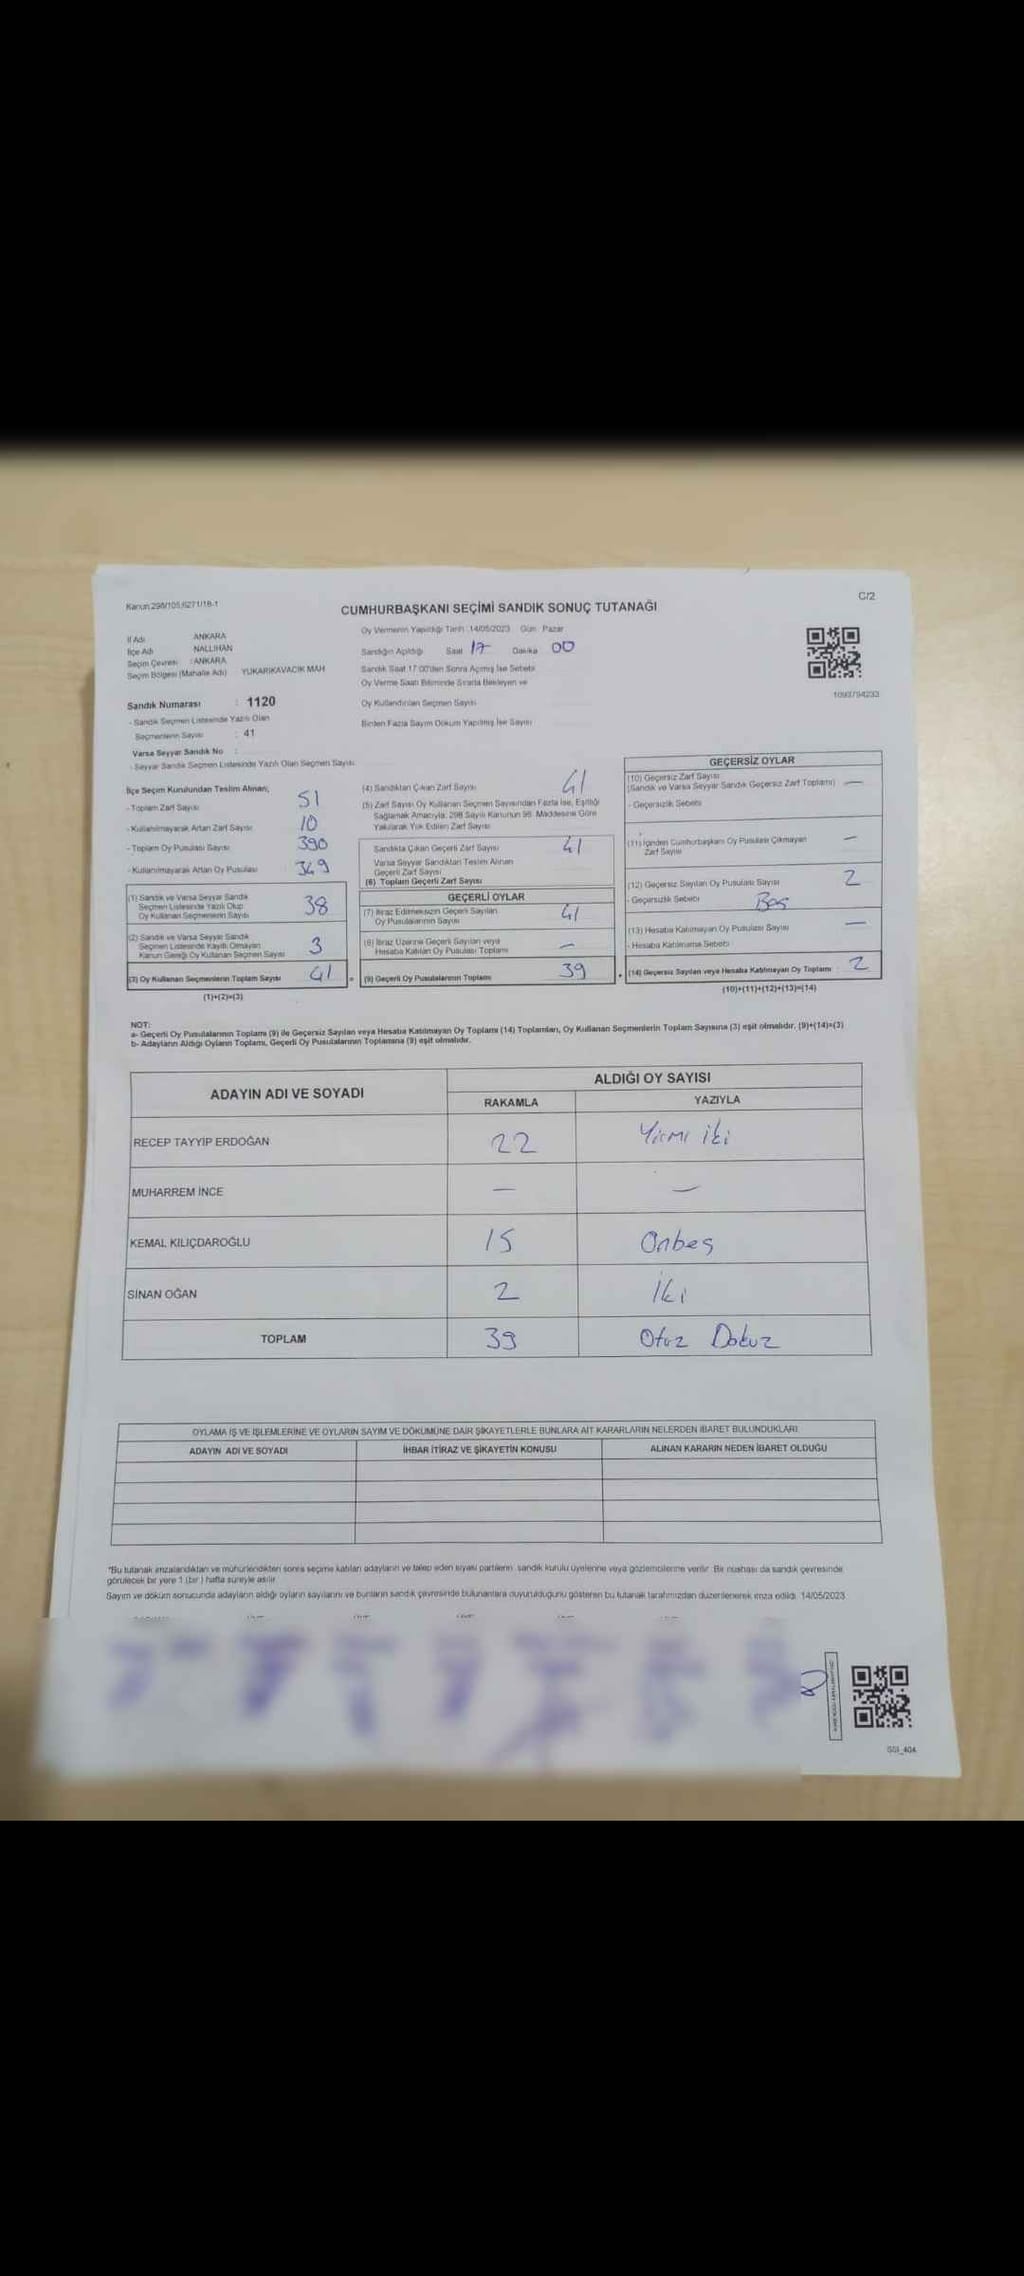 Kanun:298/105,6271/18-1
C/2
CUMHURBAŞKANI SEÇİMİ SANDIK SONUÇ TUTANAĞI
İl Adı ANKARA
İlçe Adı NALLIHAN
Seçim Çevresi : ANKARA
Seçim Bölgesi (Mahalle Adı) YUKARIKAVACIK MAH
Oy Vermenin Yapıldığı Tarih :14/05/2023 Gün: Pazar
Sandığın Açıldığı Saat 17 Dakika 00
Sandık Saat 17:00'den Sonra Açmış İse Sebebi
Oy Verme Saati Bitiminde Sırada Bekleyen ve
Oy Kullandırılan Seçmen Sayısı
Birden Fazla Sayım Döküm Yapılmış İse Sayısı
1093794233
Sandık Numarası : 1120
- Sandık Seçmen Listesinde Yazılı Olan
Seçmenlerin Sayısı : 41
Varsa Seyyar Sandık No :
- Seyyar Sandık Seçmen Listesinde Yazılı Olan Seçmen Sayısı
İlçe Seçim Kurulundan Teslim Alınan;
- Toplam Zarf Sayısı 51
- Kullanılmayarak Artan Zarf Sayısı 10
- Toplam Oy Pusulası Sayısı 390
- Kullanılmayarak Artan Oy Pusulası 349
(1) Sandık ve Varsa Seyyar Sandık
Seçmen Listesinde Yazılı Olup
Oy Kullanan Seçmenlerin Sayısı 38
(2) Sandık ve Varsa Seyyar Sandık
Seçmen Listesinde Kayıtlı Olmayan
Kanun Gereği Oy Kullanan Seçmen Sayısı 3
(3) Oy Kullanan Seçmenlerin Toplam Sayısı 41 =
(1)+(2)=(3)
(4) Sandıktan Çıkan Zarf Sayısı 41
(5) Zarf Sayısı Oy Kullanan Seçmen Sayısından Fazla İse, Eşitliği
Sağlamak Amacıyla, 298 Sayılı Kanunun 98. Maddesine Göre
Yakılarak Yok Edilen Zarf Sayısı
Sandıkta Çıkan Geçerli Zarf Sayısı 41
Varsa Seyyar Sandıktan Teslim Alınan
Geçerli Zarf Sayısı
(6) Toplam Geçerli Zarf Sayısı
GEÇERLİ OYLAR
(7) İtiraz Edilmeksizin Geçerli Sayılan
Oy Pusulalarının Sayısı 41
(8) İtiraz Üzerine Geçerli Sayılan veya
Hesaba Katılan Oy Pusulası Toplamı —
(9) Geçerli Oy Pusulalarının Toplamı 39 +
GEÇERSİZ OYLAR
(10) Geçersiz Zarf Sayısı
(Sandık ve Varsa Seyyar Sandık Geçersiz Zarf Toplamı) —
- Geçersizlik Sebebi
(11) İçinden Cumhurbaşkanı Oy Pusulası Çıkmayan
Zarf Sayısı —
(12) Geçersiz Sayılan Oy Pusulası Sayısı 2
- Geçersizlik Sebebi Boş
(13) Hesaba Katılmayan Oy Pusulası Sayısı —
- Hesaba Katılmama Sebebi
(14) Geçersiz Sayılan veya Hesaba Katılmayan Oy Toplamı 2
(10)+(11)+(12)+(13)=(14)
NOT:
a- Geçerli Oy Pusulalarının Toplamı (9) ile Geçersiz Sayılan veya Hesaba Katılmayan Oy Toplamı (14) Toplamları, Oy Kullanan Seçmenlerin Toplam Sayısına (3) eşit olmalıdır. (9)+(14)=(3)
b- Adayların Aldığı Oyların Toplamı, Geçerli Oy Pusulalarının Toplamına (9) eşit olmalıdır.
ADAYIN ADI VE SOYADI
ALDIĞI OY SAYISI
RAKAMLA YAZIYLA
RECEP TAYYİP ERDOĞAN 22 Yirmi iki
MUHARREM İNCE — —
KEMAL KILIÇDAROĞLU 15 Onbeş
SİNAN OĞAN 2 İki
TOPLAM 39 Otuz Dokuz
OYLAMA İŞ VE İŞLEMLERİNE VE OYLARIN SAYIM VE DÖKÜMÜNE DAİR ŞİKAYETLERLE BUNLARA AİT KARARLARIN NELERDEN İBARET BULUNDUKLARI
ADAYIN ADI VE SOYADI İHBAR İTİRAZ VE ŞİKAYETİN KONUSU ALINAN KARARIN NEDEN İBARET OLDUĞU
*Bu tutanak imzalandıktan ve mühürlendikten sonra seçime katılan adayların ve talep eden siyasi partilerin sandık kurulu üyelerine veya gözlemcilerine verilir. Bir nüshası da sandık çevresinde
görülecek bir yere 1 (bir) hafta süreyle asılır.
Sayım ve döküm sonucunda adayların aldığı oyların sayılarını ve bunların sandık çevresinde bulunanlara duyurulduğunu gösteren bu tutanak tarafımızdan düzenlenerek imza edildi. 14/05/2023
SSI_40A